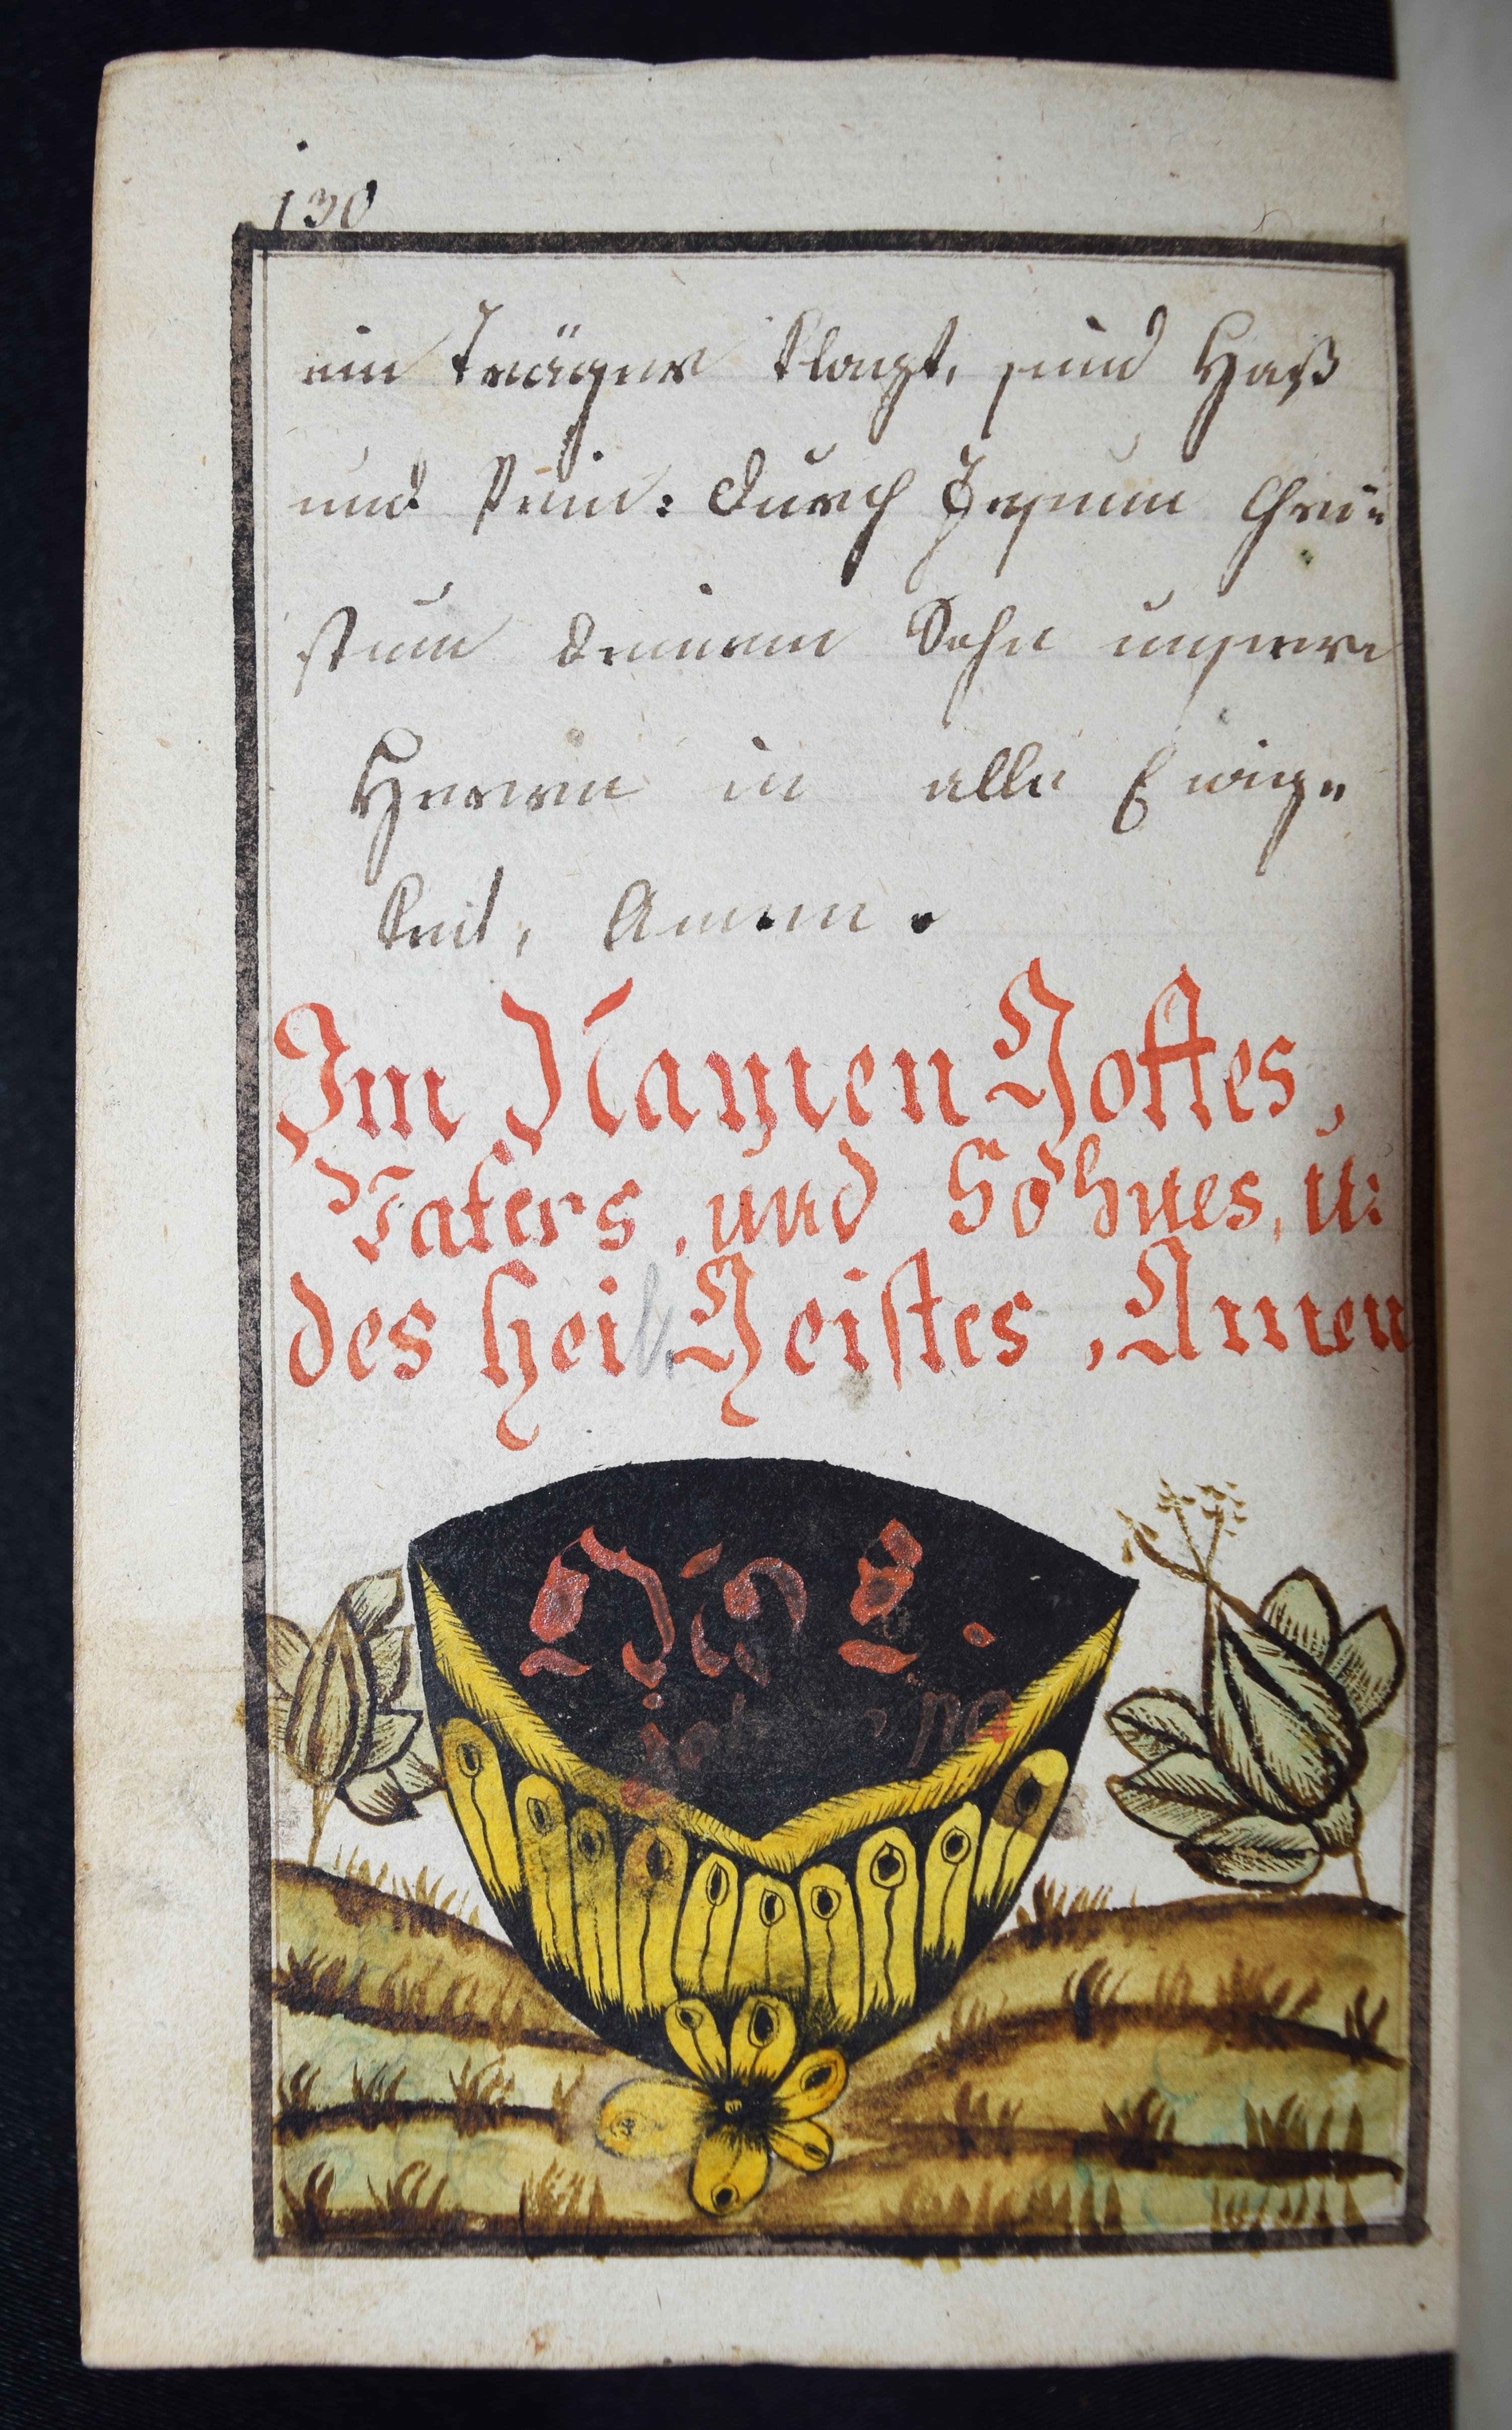 130
ein träger klagt, sind Haß
und Pein: durch Jesum Chri=
stum deinem Sohn unsere
Herren in alle Ewig=
keit, Amen.
Im Namen Gottes,
Vaters, und Sohnes, u:
des heil. Geistes, Amen